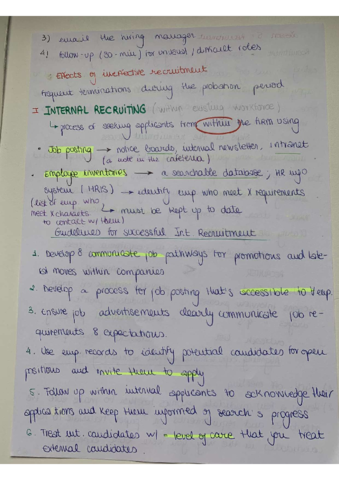 3) email the hiring manager
4) follow-up (30-min) for unusual / difficult roles
Effects of ineffective recruitment
frequent terminations during the probation period
I INTERNAL RECRUITING (within existing workforce)
↳ process of seeking applicants from within the firm using
• Job posting → notice boards, internal newsletter, intranet
(a note in the cafeteria)
• Employee inventories → a searchable database, HR info
system (HRIS) → identify emp who meet x requirements
(list of emp who
meet x characts ↳ must be kept up to date
to contact w/ them)
Guidelines for successful Int Recruitment
1. Develop & communicate job pathways for promotions and late-
ral moves within companies
2. Develop a process for job posting that's accessible to emp.
3. Ensure job advertisements clearly communicate job re-
quirements & expectations
4. Use emp records to identify potential candidates for open
positions and invite them to apply
5. Follow up within internal applicants to acknowledge their
applications and keep them informed of search's progress
6. Treat int. candidates w/ = level of care that you treat
external candidates